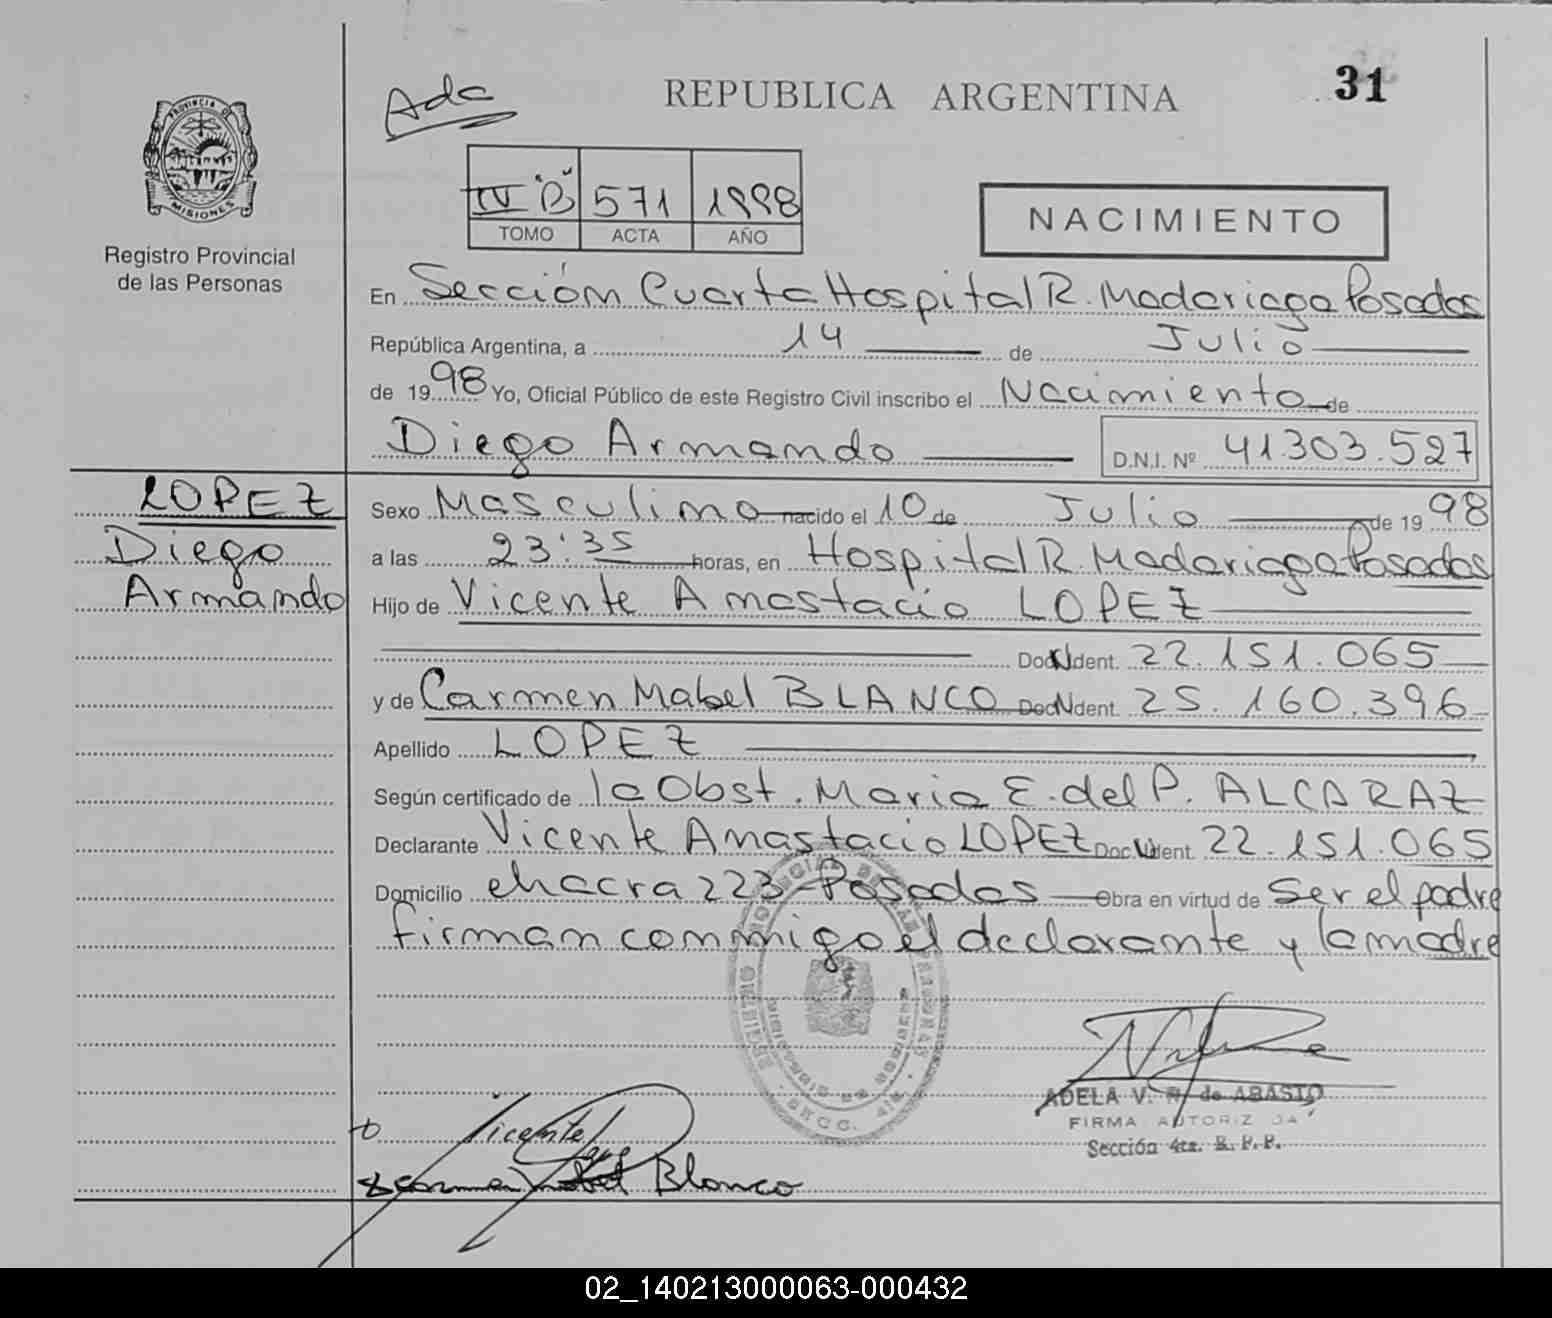 31
Ada
REPUBLICA ARGENTINA
PROVINCIA DE
MISIONES
Registro Provincial
de las Personas
IV "B" 571 1998
TOMO ACTA AÑO
NACIMIENTO
En Sección Cuarta Hospital R. Madariaga Posadas
República Argentina, a 14 de Julio
de 1998 Yo, Oficial Público de este Registro Civil inscribo el Nacimiento de
Diego Armando D.N.I. Nº 41.303.527
LOPEZ
Diego
Armando
Sexo Masculino nacido el 10 de Julio de 1998
a las 23:35 horas, en Hospital R. Madariaga Posadas
Hijo de Vicente Anastacio LOPEZ
Doc. Ident. 22.151.065
y de Carmen Mabel BLANCO Doc. Ident. 25.160.396
Apellido LOPEZ
Según certificado de la Obst. Maria E. del P. ALCARAZ
Declarante Vicente Anastacio LOPEZ Doc. Ident. 22.151.065
Domicilio chacra 223 Posadas Obra en virtud de Ser el padre
firman conmigo el declarante y la madre
REGISTRO PROVINCIAL DE LAS PERSONAS
SECC. 4ta.
ADELA V. R. de ABASTO
FIRMA AUTORIZADA
Sección 4ta. R. P. P.
Vicente Lopez
Carmen Mabel Blanco
02_140213000063-000432